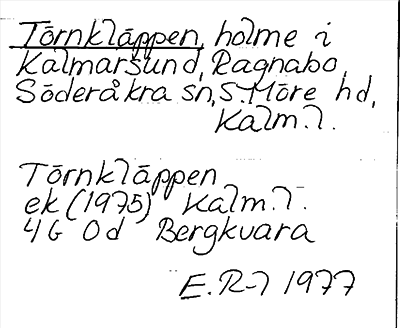 Törnkläppen, holme i
Kalmarsund, Ragnabo,
Söderåkra sn, S. Möre hd,
Kalm. l.
Törnkläppen
ek (1975) Kalm. l.
4G 0d Bergkvara
E. R-7 1977